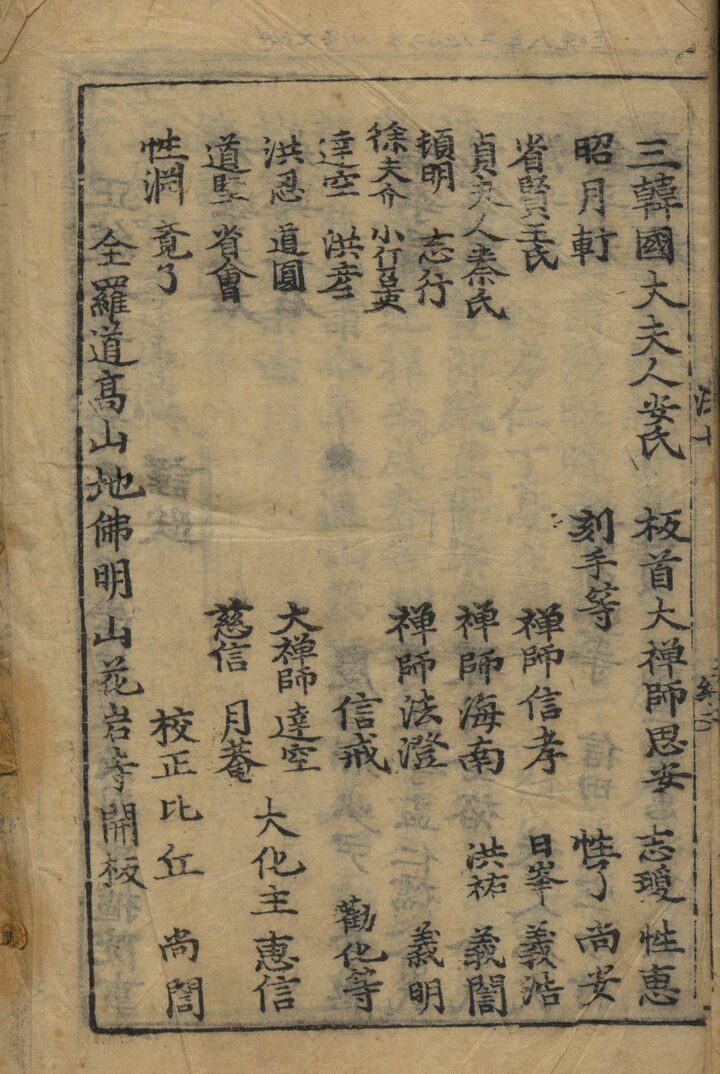 三韓國大夫人安氏 板首大禪師思安 志瓊 性惠
昭月軒 刻手等 性了 尚安
省賢王氏 禅師信孝 日峯 義浩
貞夫人秦氏 禅師海南 洪祐 義誾
頓明 志行 禅師法澄 義明
徐夫介 小行
達空 洪彦 信戒 勸化等
洪忍 道圓 大禅師達空 大化主惠信
道堅 省會 慈信 月菴
性淵 竟了 校正比丘 尚誾
全羅道高山地佛明山花岩寺開板